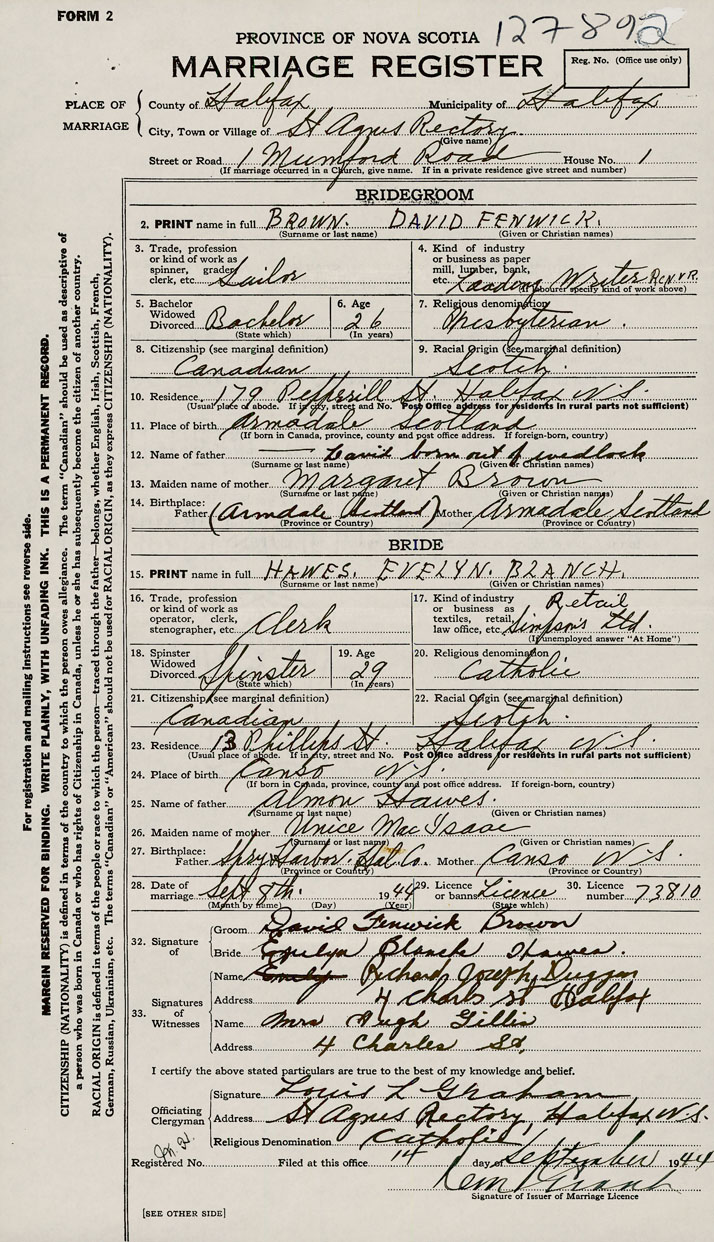 FORM 2
127892
PROVINCE OF NOVA SCOTIA
MARRIAGE REGISTER
Reg. No. (Office use only)
PLACE OF MARRIAGE
County of Halifax Municipality of Halifax
City, Town or Village of St Agnes Rectory
(Give name)
Street or Road 1 Mumford Road House No. 1
(If marriage occurred in a Church, give name. If in a private residence give street and number)
BRIDEGROOM
2. PRINT name in full BROWN. DAVID FENWICK.
(Surname or last name) (Given or Christian names)
3. Trade, profession or kind of work as spinner, grader, clerk, etc. Sailor
4. Kind of industry or business as paper mill, lumber, bank, etc. Leading Writer R.C.N.V.R.
(If labourer specify kind of work above)
5. Bachelor Widowed Divorced Bachelor
(State which)
6. Age 26
(In years)
7. Religious denomination Presbyterian.
8. Citizenship (see marginal definition) Canadian
9. Racial Origin (see marginal definition) Scotch.
10. Residence 179 Pepperill St. Halifax N.S.
(Usual place of abode. If in city, street and No. Post Office address for residents in rural parts not sufficient)
11. Place of birth Armadale Scotland
(If born in Canada, province, county and post office address. If foreign-born, country)
12. Name of father — David born out of wedlock
(Surname or last name) (Given or Christian names)
13. Maiden name of mother Margaret Brown
(Surname or last name) (Given or Christian names)
14. Birthplace: Father (Armdale Scotland) Mother Armadale Scotland
(Province or Country) (Province or Country)
BRIDE
15. PRINT name in full HAWES. EVELYN. BLANCH.
(Surname or last name) (Given or Christian names)
16. Trade, profession or kind of work as operator, clerk, stenographer, etc. Clerk
17. Kind of industry or business as textiles, retail, law office, etc. Retail Simpson's Ltd.
(If unemployed answer "At Home")
18. Spinster Widowed Divorced Spinster
(State which)
19. Age 29
(In years)
20. Religious denomination Catholic
21. Citizenship (see marginal definition) Canadian
22. Racial Origin (see marginal definition) Scotch.
23. Residence 13 Phillips St. Halifax N.S.
(Usual place of abode. If in city, street and No. Post Office address for residents in rural parts not sufficient)
24. Place of birth Canso N.S.
(If born in Canada, province, county and post office address. If foreign-born, country)
25. Name of father Almon Hawes.
(Surname or last name) (Given or Christian names)
26. Maiden name of mother Unice MacIsaac
(Surname or last name) (Given or Christian names)
27. Birthplace: Father Spry Harbor. Hal. Co. Mother Canso N.S.
(Province or Country) (Province or Country)
28. Date of marriage Sept 8th. 1944
(Month by name) (Day) (Year)
29. Licence or banns Licence
(State which)
30. Licence number 73810
32. Signature of
Groom David Fenwick Brown
Bride Evelyn Blanche Hawes.
33. Signatures of Witnesses
Name Richard Joseph Duggan
Address 4 Charles St Halifax
Name Mrs Hugh Gillis
Address 4 Charles St.
I certify the above stated particulars are true to the best of my knowledge and belief.
Officiating Clergyman
Signature Louis L Graham
Address St Agnes Rectory, Halifax N.S.
Religious Denomination Catholic
Registered No. Filed at this office 14 day of September 1944
Signature of Issuer of Marriage Licence
[SEE OTHER SIDE]
For registration and mailing instructions see reverse side.
MARGIN RESERVED FOR BINDING. WRITE PLAINLY, WITH UNFADING INK. THIS IS A PERMANENT RECORD.
CITIZENSHIP (NATIONALITY) is defined in terms of the country to which the person owes allegiance. The term "Canadian" should be used as descriptive of
a person who was born in Canada or who has rights of Citizenship in Canada, unless he or she has subsequently become the citizen of another country.
RACIAL ORIGIN is defined in terms of the people or race to which the person—traced through the father—belongs, whether English, Irish, Scottish, French,
German, Russian, Ukrainian, etc. The terms "Canadian" or "American" should not be used for RACIAL ORIGIN, as they express CITIZENSHIP (NATIONALITY).